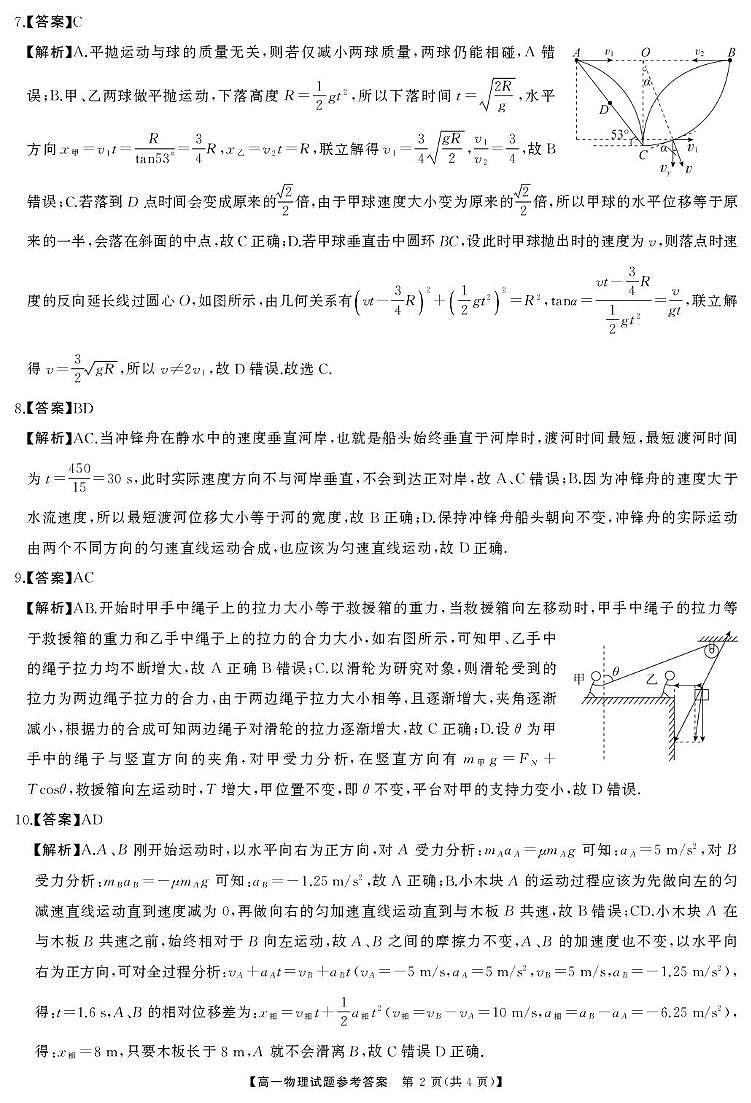 7.【答案】C
【解析】A.平抛运动与球的质量无关,则若仅减小两球质量,两球仍能相碰,A 错
误;B.甲、乙两球做平抛运动,下落高度 R=1/2 gt²,所以下落时间 t=√(2R/g),水平
方向 x甲=v₁t=R/tan53°=3/4 R,x乙=v₂t=R,联立解得 v₁=3/4 √(gR/2),v₁/v₂=3/4,故 B
错误;C.若落到 D 点时间会变成原来的√2/2倍,由于甲球速度大小变为原来的√2/2倍,所以甲球的水平位移等于原
来的一半,会落在斜面的中点,故 C 正确;D.若甲球垂直击中圆环 BC,设此时甲球抛出时的速度为 v,则落点时速
度的反向延长线过圆心 O,如图所示,由几何关系有(vt−3/4 R)²+(1/2 gt²)²=R²,tanα=(vt−3/4 R)/(1/2 gt²)=v/gt,联立解
得 v=3/2 √gR,所以 v≠2v₁,故 D 错误.故选 C.
A v₁ O v₂ B
α
D
53°
C α v₁
vᵧ v
8.【答案】BD
【解析】AC.当冲锋舟在静水中的速度垂直河岸,也就是船头始终垂直于河岸时,渡河时间最短,最短渡河时间
为 t=450/15=30 s,此时实际速度方向不与河岸垂直,不会到达正对岸,故 A、C 错误;B.因为冲锋舟的速度大于
水流速度,所以最短渡河位移大小等于河的宽度,故 B 正确;D.保持冲锋舟船头朝向不变,冲锋舟的实际运动
由两个不同方向的匀速直线运动合成,也应该为匀速直线运动,故 D 正确.
9.【答案】AC
【解析】AB.开始时甲手中绳子上的拉力大小等于救援箱的重力,当救援箱向左移动时,甲手中绳子的拉力等
于救援箱的重力和乙手中绳子上的拉力的合力大小,如右图所示,可知甲、乙手中
的绳子拉力均不断增大,故 A 正确 B 错误;C.以滑轮为研究对象,则滑轮受到的
拉力为两边绳子拉力的合力,由于两边绳子拉力大小相等,且逐渐增大,夹角逐渐
减小,根据力的合成可知两边绳子对滑轮的拉力逐渐增大,故 C 正确;D.设 θ 为甲
手中的绳子与竖直方向的夹角,对甲受力分析,在竖直方向有 m甲g=F_N+
Tcosθ,救援箱向左运动时,T 增大,甲位置不变,即 θ 不变,平台对甲的支持力变小,故 D 错误.
甲 θ 乙
10.【答案】AD
【解析】A.A、B 刚开始运动时,以水平向右为正方向,对 A 受力分析:m_Aa_A=μm_Ag 可知:a_A=5 m/s²,对 B
受力分析:m_Ba_B=−μm_Ag 可知:a_B=−1.25 m/s²,故 A 正确;B.小木块 A 的运动过程应该为先做向左的匀
减速直线运动直到速度减为 0,再做向右的匀加速直线运动直到与木板 B 共速,故 B 错误;CD.小木块 A 在
与木板 B 共速之前,始终相对于 B 向左运动,故 A、B 之间的摩擦力不变,A、B 的加速度也不变,以水平向
右为正方向,可对全过程分析:v_A+a_At=v_B+a_Bt(v_A=−5 m/s,a_A=5 m/s²,v_B=5 m/s,a_B=−1.25 m/s²),
得:t=1.6 s,A、B 的相对位移差为:x相=v相t+1/2 a相t²(v相=v_B−v_A=10 m/s,a相=a_B−a_A=−6.25 m/s²),
得:x相=8 m,只要木板长于 8 m,A 就不会滑离 B,故 C 错误 D 正确.
【高一物理试题参考答案 第 2 页(共 4 页)】